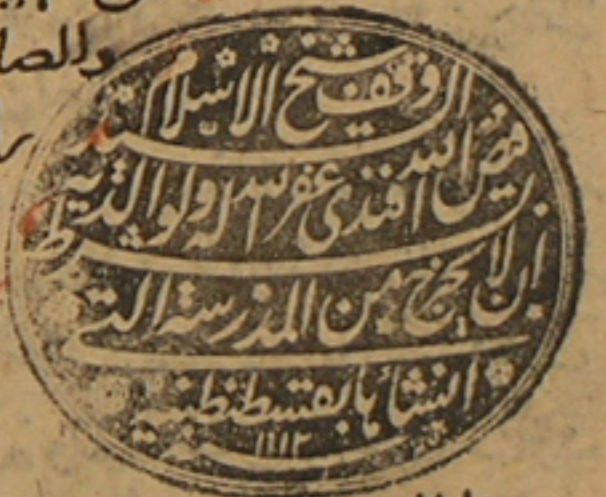 والصلا
وقف شيخ الاسلام السيد
فيض الله افندى غفر الله له ولوالديه
بشرط ان لا يخرج من المدرسة التى
انشأها بقسطنطينية
١١١٢